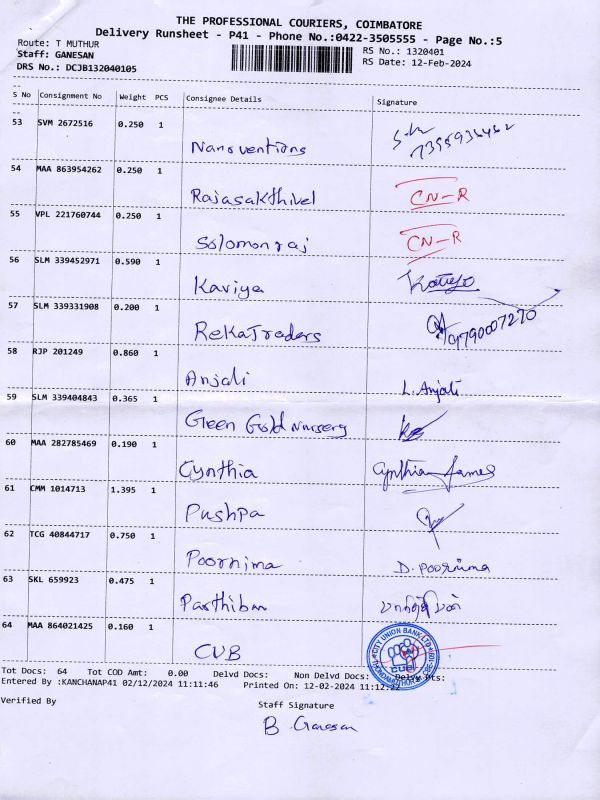 THE PROFESSIONAL COURIERS, COIMBATORE
Delivery Runsheet - P41 - Phone No.:0422-3505555 - Page No.:5
Route: T MUTHUR
Staff: GANESAN
DRS No.: DCJB132040105
RS No.: 1320401
RS Date: 12-Feb-2024
S No Consignment No Weight PCS Consignee Details Signature
53 SVM 2672516 0.250 1
Nanoventions
54 MAA 863954262 0.250 1
Rajasakthivel CN-R
55 VPL 221760744 0.250 1
Solomonraj CN-R
56 SLM 339452971 0.590 1
Kaviya
57 SLM 339331908 0.200 1
RekaTraders 9790007270
58 RJP 201249 0.860 1
Anjali L.Anjali
59 SLM 339404843 0.365 1
Green Gold Nursery
60 MAA 282785469 0.190 1
Cynthia Cynthia James
61 CMM 1014713 1.395 1
Pushpa
62 TCG 40844717 0.750 1
Poornima D. Poornima
63 SKL 659923 0.475 1
Parthiban
64 MAA 864021425 0.160 1
CUB CITY UNION BANK LTD
Tot Docs: 64 Tot COD Amt: 0.00 Delvd Docs: Non Delvd Docs: Delvd Wts:
Entered By :KANCHANAP41 02/12/2024 11:11:46 Printed On: 12-02-2024 11:12:22
Verified By Staff Signature
B. Ganesan